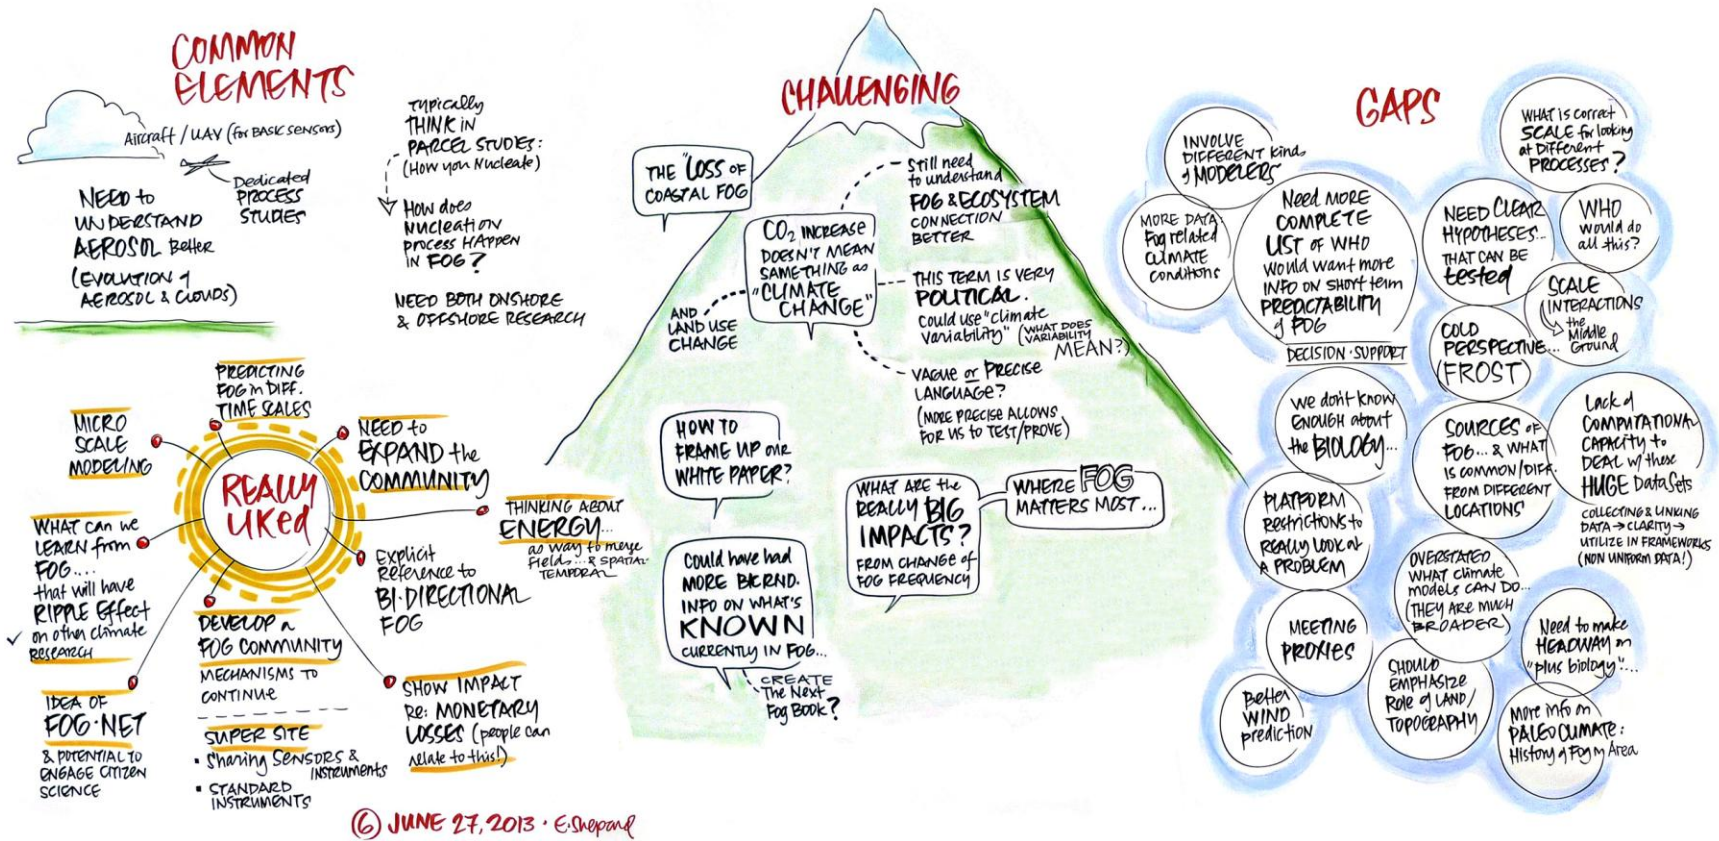 COMMON
ELEMENTS
Aircraft / UAV (for BASIC SENSORS)
Dedicated
PROCESS
STUDIES
NEED to
UNDERSTAND
AEROSOL Better
(EVOLUTION of
AEROSOL & CLOUDS)
Typically
THINK in
PARCEL STUDIES:
(How you Nucleate)
How does
Nucleation
process HAPPEN
IN FOG?
NEED BOTH ONSHORE
& OFFSHORE RESEARCH
REALLY
LIKED
PREDICTING
FOG in DIFF.
TIME SCALES
MICRO
SCALE
MODELING
NEED to
EXPAND the
COMMUNITY
THINKING ABOUT
ENERGY...
as way to merge
fields... & SPATIAL
TEMPORAL
WHAT can we
LEARN from
FOG....
that will have
RIPPLE Effect
✓ on other climate
RESEARCH
Explicit
Reference to
BI-DIRECTIONAL
FOG
DEVELOP a
FOG COMMUNITY
MECHANISMS TO
CONTINUE
SUPER SITE
• Sharing SENSORS &
INSTRUMENTS
• STANDARD
INSTRUMENTS
IDEA OF
FOG·NET
& POTENTIAL TO
ENGAGE CITIZEN
SCIENCE
SHOW IMPACT
Re: MONETARY
LOSSES (people can
relate to this!)
⑥ JUNE 27, 2013 · E.Shepard
CHALLENGING
THE "LOSS OF
COASTAL FOG
CO₂ INCREASE
DOESN'T MEAN
SAME THING as
"CLIMATE
CHANGE"
AND
LAND USE
CHANGE
Still need
to understand
FOG & ECOSYSTEM
CONNECTION
BETTER
THIS TERM IS VERY
POLITICAL.
Could use "climate
variability" (WHAT DOES
VARIABILITY
MEAN?)
VAGUE or PRECISE
LANGUAGE?
(MORE PRECISE ALLOWS
FOR US TO TEST/PROVE)
HOW TO
FRAME UP our
WHITE PAPER?
WHAT ARE the
REALLY BIG
IMPACTS?
FROM CHANGE of
FOG FREQUENCY
WHERE FOG
MATTERS MOST...
Could have had
MORE BKRND.
INFO ON WHAT'S
KNOWN
CURRENTLY IN FOG...
CREATE
The Next
Fog Book?
GAPS
INVOLVE
DIFFERENT Kinds
of MODELERS
WHAT is correct
SCALE for looking
at Different
PROCESSES?
MORE DATA:
Fog related
CLIMATE
conditions
Need MORE
COMPLETE
LIST of WHO
would want more
INFO ON SHORT term
PREDICTABILITY
of FOG
DECISION·SUPPORT
NEED CLEAR
HYPOTHESES...
THAT CAN BE
tested
WHO
would do
all this?
SCALE
INTERACTIONS
the
Middle
Ground
COLD
PERSPECTIVE...
(FROST)
we don't know
ENOUGH about
the BIOLOGY...
SOURCES of
FOG... & WHAT
IS COMMON/DIFF.
FROM DIFFERENT
LOCATIONS
Lack of
COMPUTATIONAL
CAPACITY to
DEAL w/ these
HUGE Data Sets
COLLECTING & LINKING
DATA → CLARITY →
UTILIZE IN FRAMEWORKS
(NON UNIFORM DATA!)
PLATFORM
Restrictions to
REALLY LOOK at
A PROBLEM
OVERSTATED
WHAT climate
models CAN DO...
(THEY ARE MUCH
BROADER)
MEETING
PROXIES
Need to make
HEADWAY on
"plus biology"...
SHOULD
EMPHASIZE
Role of LAND/
TOPOGRAPHY
Better
WIND
prediction
More info on
PALEO CLIMATE:
History of Fog in Area